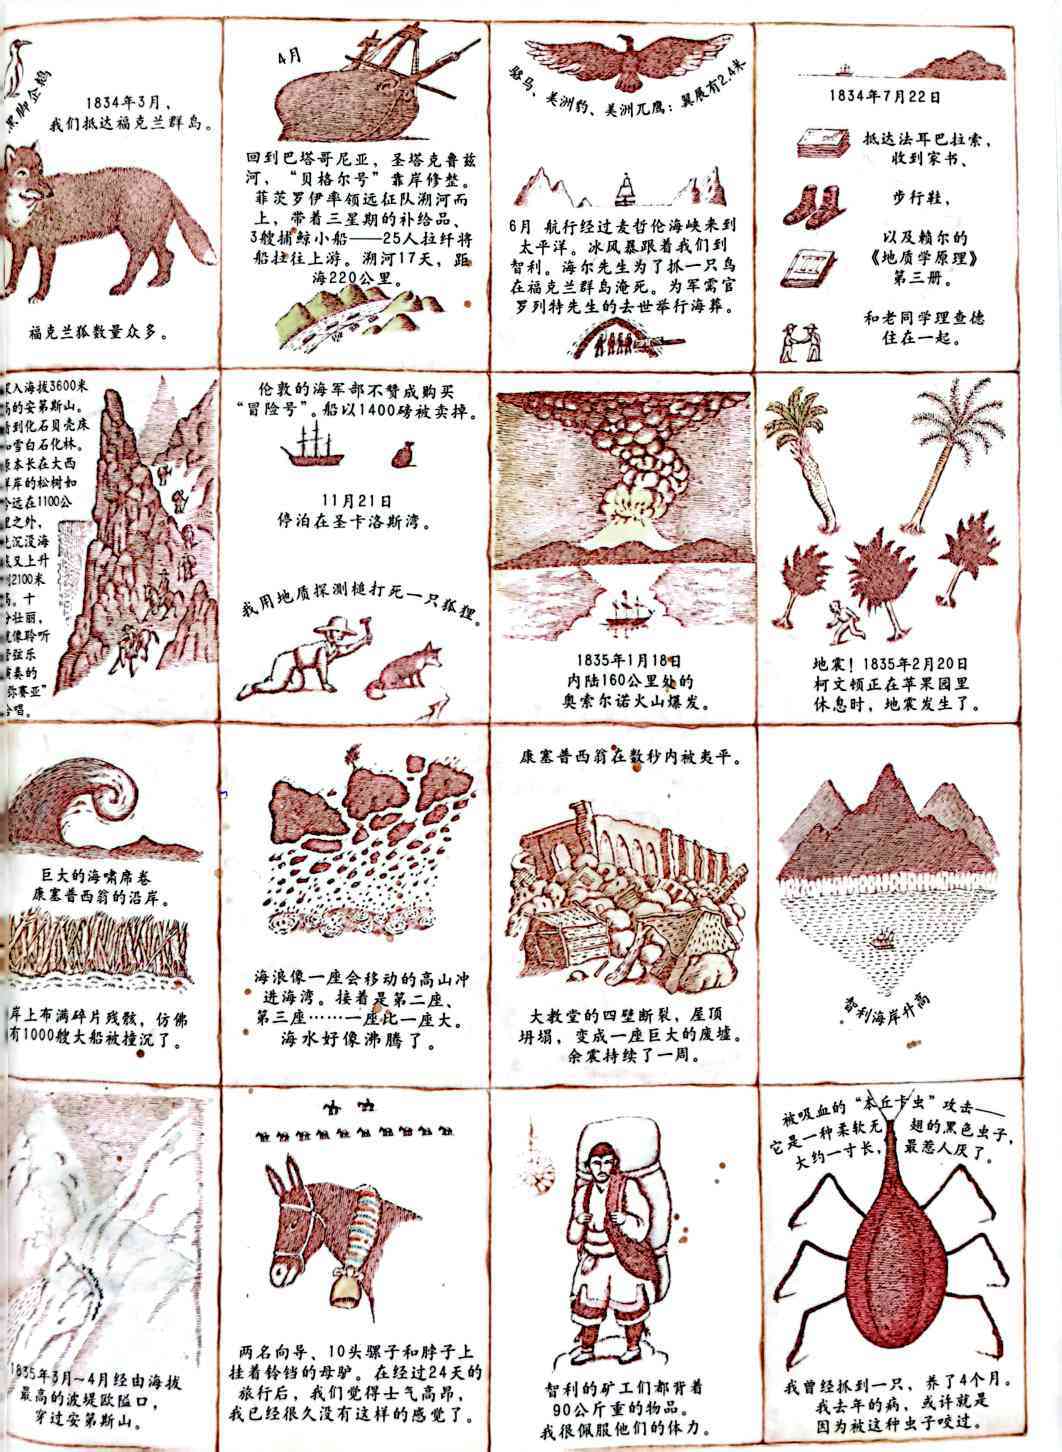 黑脚企鹅
1834年3月，
我们抵达福克兰群岛。
福克兰狐数量众多。
4月
回到巴塔哥尼亚，圣塔克鲁兹
河，“贝格尔号”靠岸修整。
菲茨罗伊率领远征队溯河而
上，带着三星期的补给品、
3艘捕鲸小船——25人拉纤将
船拉往上游。溯河17天，距
海220公里。
骆马、美洲豹、美洲兀鹰：翼展有2.4米
6月 航行经过麦哲伦海峡来到
太平洋。冰风暴跟着我们到
智利。海尔先生为了抓一只鸟
在福克兰群岛淹死。为军需官
罗列特先生的去世举行海葬。
1834年7月22日
抵达法耳巴拉索，
收到家书、
步行鞋，
以及赖尔的
《地质学原理》
第三册。
和老同学理查德
住在一起。
入海拔3600米
的安第斯山。
到化石贝壳床
雪白石化林。
原本长在大西
洋岸的松树如
今远在1100公
里之外，
沉没海
底又上升
到2100米
高。十
分壮丽，
就像聆听
管弦乐
演奏的
“弥赛亚”
合唱。
伦敦的海军部不赞成购买
“冒险号”。船以1400磅被卖掉。
11月21日
停泊在圣卡洛斯湾。
我用地质探测槌打死一只狐狸。
1835年1月18日
内陆160公里处的
奥索尔诺火山爆发。
地震！1835年2月20日
柯文顿正在苹果园里
休息时，地震发生了。
巨大的海啸席卷
康塞普西翁的沿岸。
岸上布满碎片残骸，仿佛
有1000艘大船被撞沉了。
海浪像一座会移动的高山冲
进海湾。接着是第二座、
第三座……一座比一座大。
海水好像沸腾了。
康塞普西翁在数秒内被夷平。
大教堂的四壁断裂，屋顶
坍塌，变成一座巨大的废墟。
余震持续了一周。
智利海岸升高
1835年3月~4月经由海拔
最高的波堤欧隘口，
穿过安第斯山。
两名向导、10头骡子和脖子上
挂着铃铛的母驴。在经过24天的
旅行后，我们觉得士气高昂，
我已经很久没有这样的感觉了。
智利的矿工们都背着
90公斤重的物品。
我很佩服他们的体力。
被吸血的“本丘卡虫”攻击——
它是一种柔软无翅的黑色虫子，
大约一寸长，最惹人厌了。
我曾经抓到一只，养了4个月。
我去年的病，或许就是
因为被这种虫子咬过。